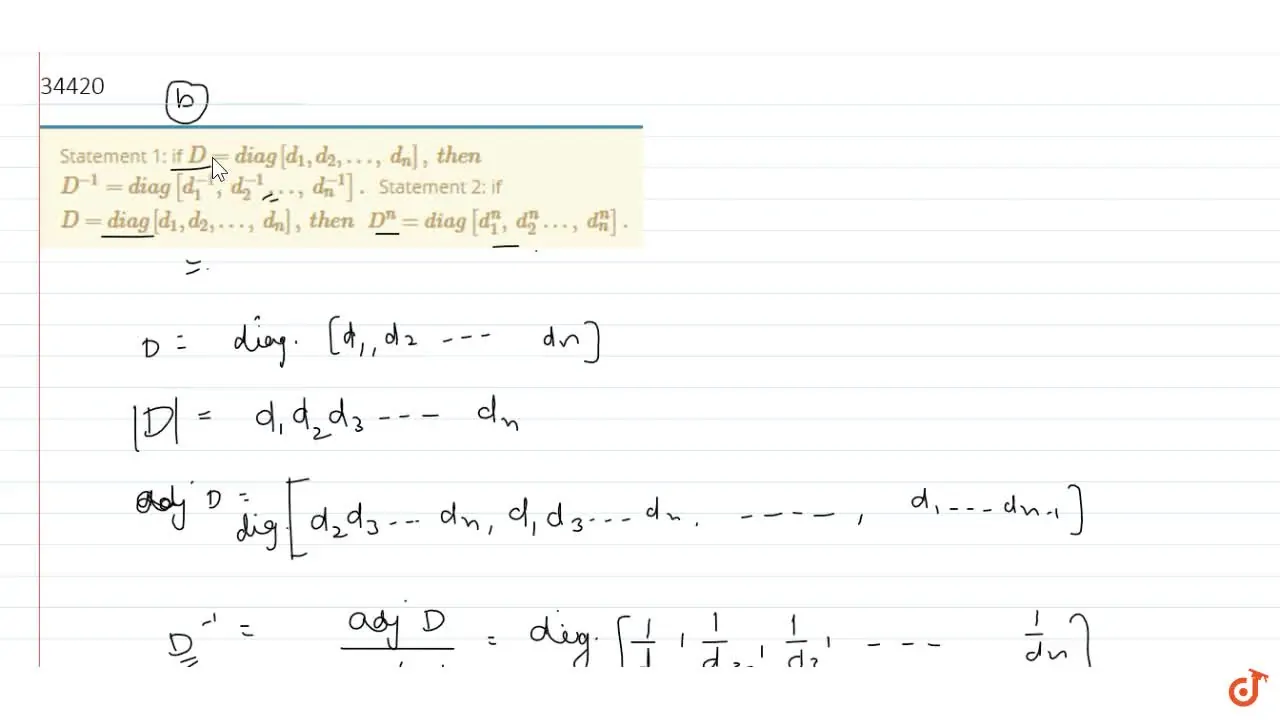 34420
b
Statement 1: if D = diag [d₁, d₂, ..., dₙ], then
D⁻¹ = diag [d₁⁻¹, d₂⁻¹, .., dₙ⁻¹]. Statement 2: if
D = diag [d₁, d₂, ..., dₙ], then Dⁿ = diag [d₁ⁿ, d₂ⁿ ..., dₙⁿ].
=.
D = diag. [d₁, d₂ --- dn]
|D| = d₁ d₂ d₃ --- dₙ
adj D =
dig [d₂d₃ --- dₙ, d₁d₃ --- dₙ, ----, d₁ --- dₙ₋₁]
D⁻¹ = adj D = diag. [1/ , 1/d₂, 1/d₃, --- 1/dn]